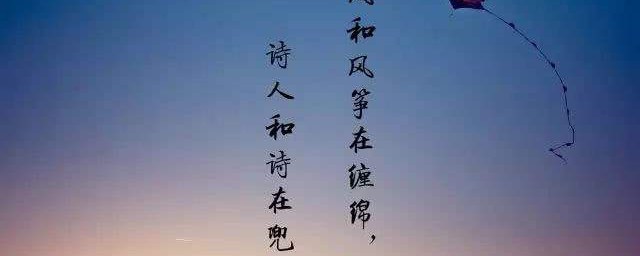 和风筝在缠绵，
诗人和诗在兜